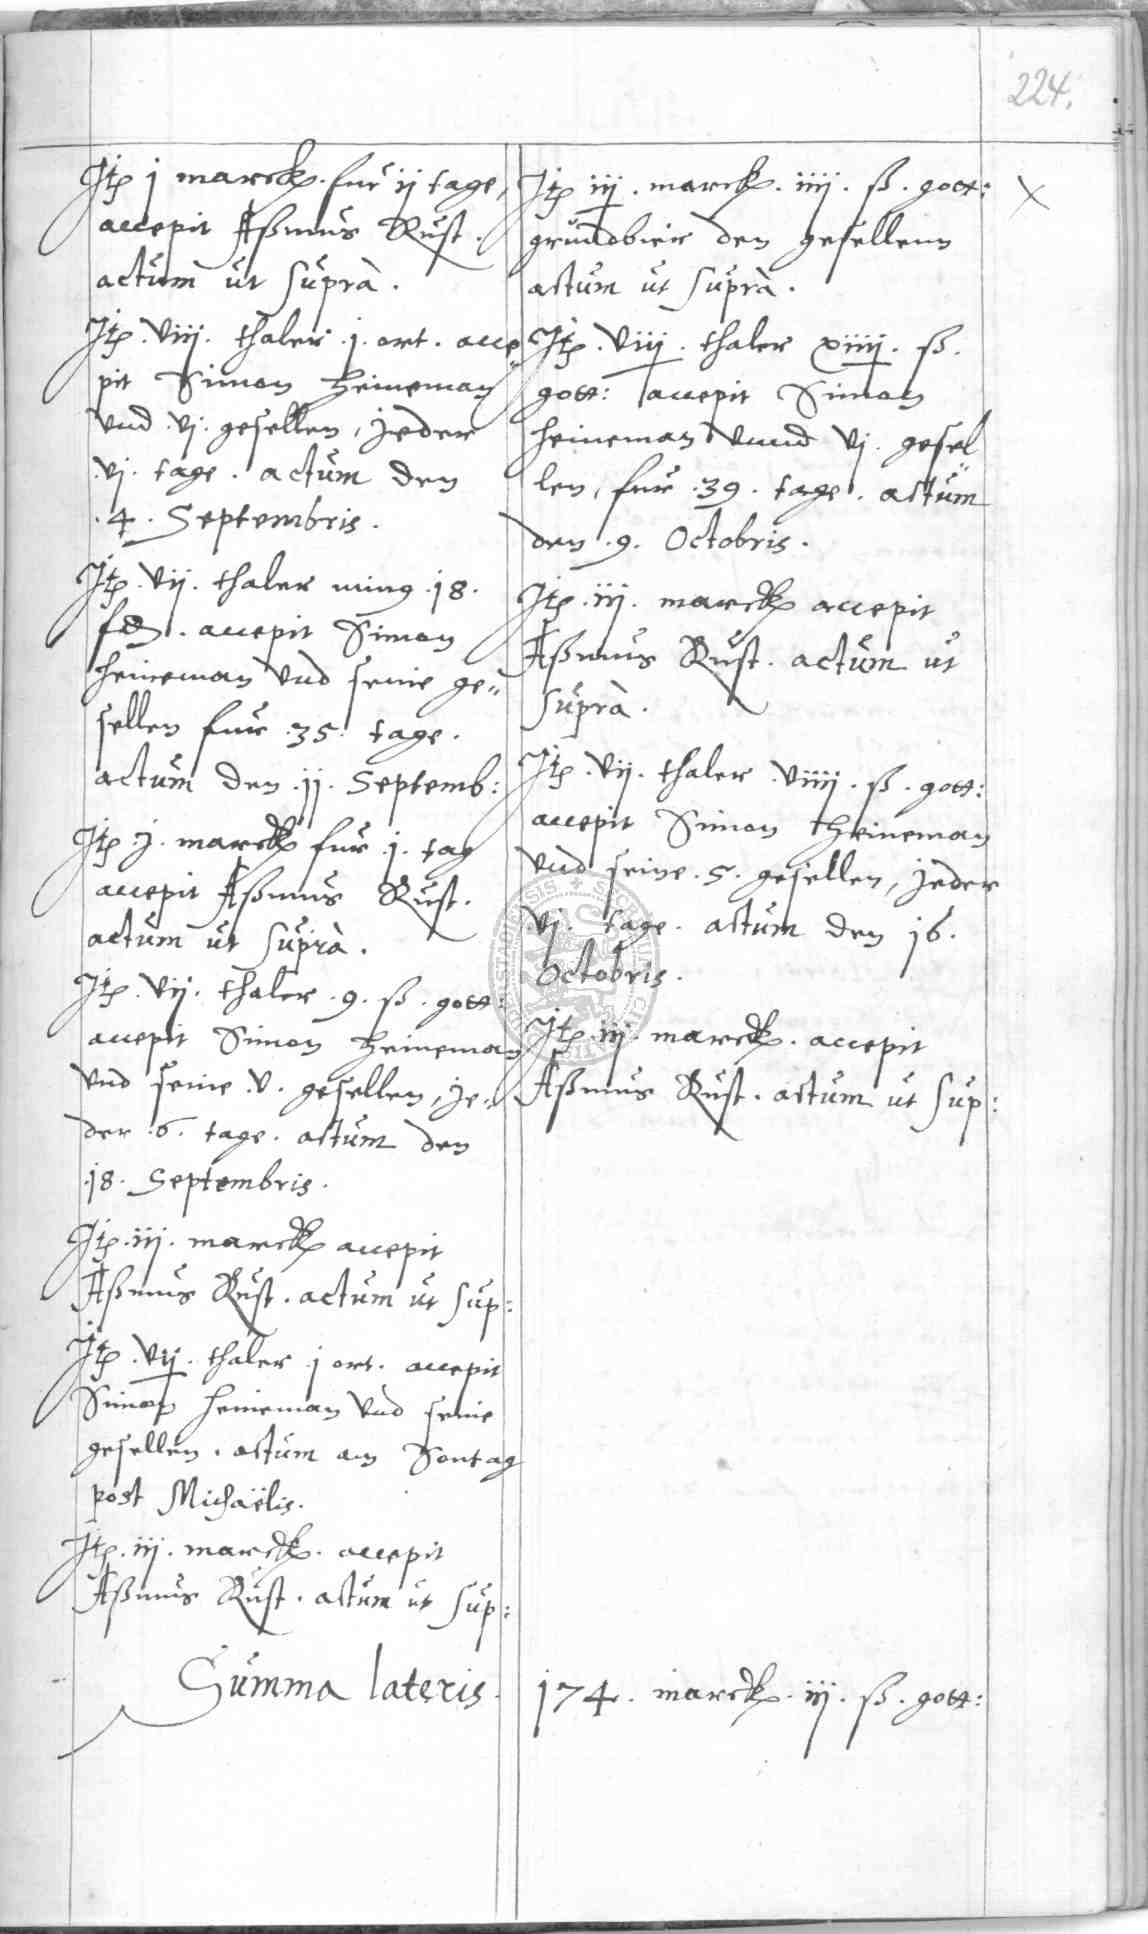 224.
Itp j marck. fur ij tage,
accepit Aßmus Rust.
actum ut suprà.
Itp. viij. thaler .j. ort. acce„
pit Simon Heineman
vnd .vj. gesellen, jeder
.vj. tage. actum den
.4. Septembris.
Itp. vij. thaler min9 .18.
accepit Simon
Heineman vnd seine ge„
sellen fur .35. tage.
actum den .jj. Septemb:
Itp .j. marck fur .j. tag
accepit Aßmus Rust.
actum ut suprà.
Itp. vij. thaler .9. ß. gott:
accepit Simon Heineman
vnd seine .v. gesellen, je„
der .6. tage. actum den
.18. Septembris.
Itp .iij. marck accepit
Aßmus Rust. actum ut sup:
Itp. vij. thaler j ort. accepit
Simon Heineman vnd seine
gesellen. actum am Sontag
post Michaëlis.
Itp. iij. marck. accepit
Aßmus Rust. actum ut sup:
Itp iij. marck. iiij. ß. gott:
grundbier den gesellenn
actum ut suprà.
Itp. viij. thaler xiiij. ß.
gott: accepit Simon
Heineman vnnd vj. gesel„
len, fur .39. tage. actum
den .9. Octobris.
Itp. iij. marck accepit
Aßmus Rust. actum ut
suprà.
Itp. vij. thaler viiij. ß. gott:
accepit Simon Heineman
vnd seine .5. gesellen, jeder
.vj. tage. actum den 16.
Octobris.
Itp iij. marck. accepit
Aßmus Rust. actum ut sup:
Summa lateris. 174. marck. iij. ß. gott: